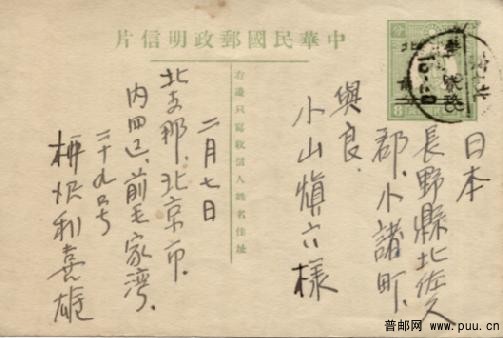 中華民國郵政明信片
右邊只寫收信人姓名住址
日本
長野縣北佐久
郡、小諸町、
與良、
小山愼六様
二月七日
北支那、北京市、
内四区、前毛家湾、
二十九号
利喜雄
普邮网 www.puu.cn